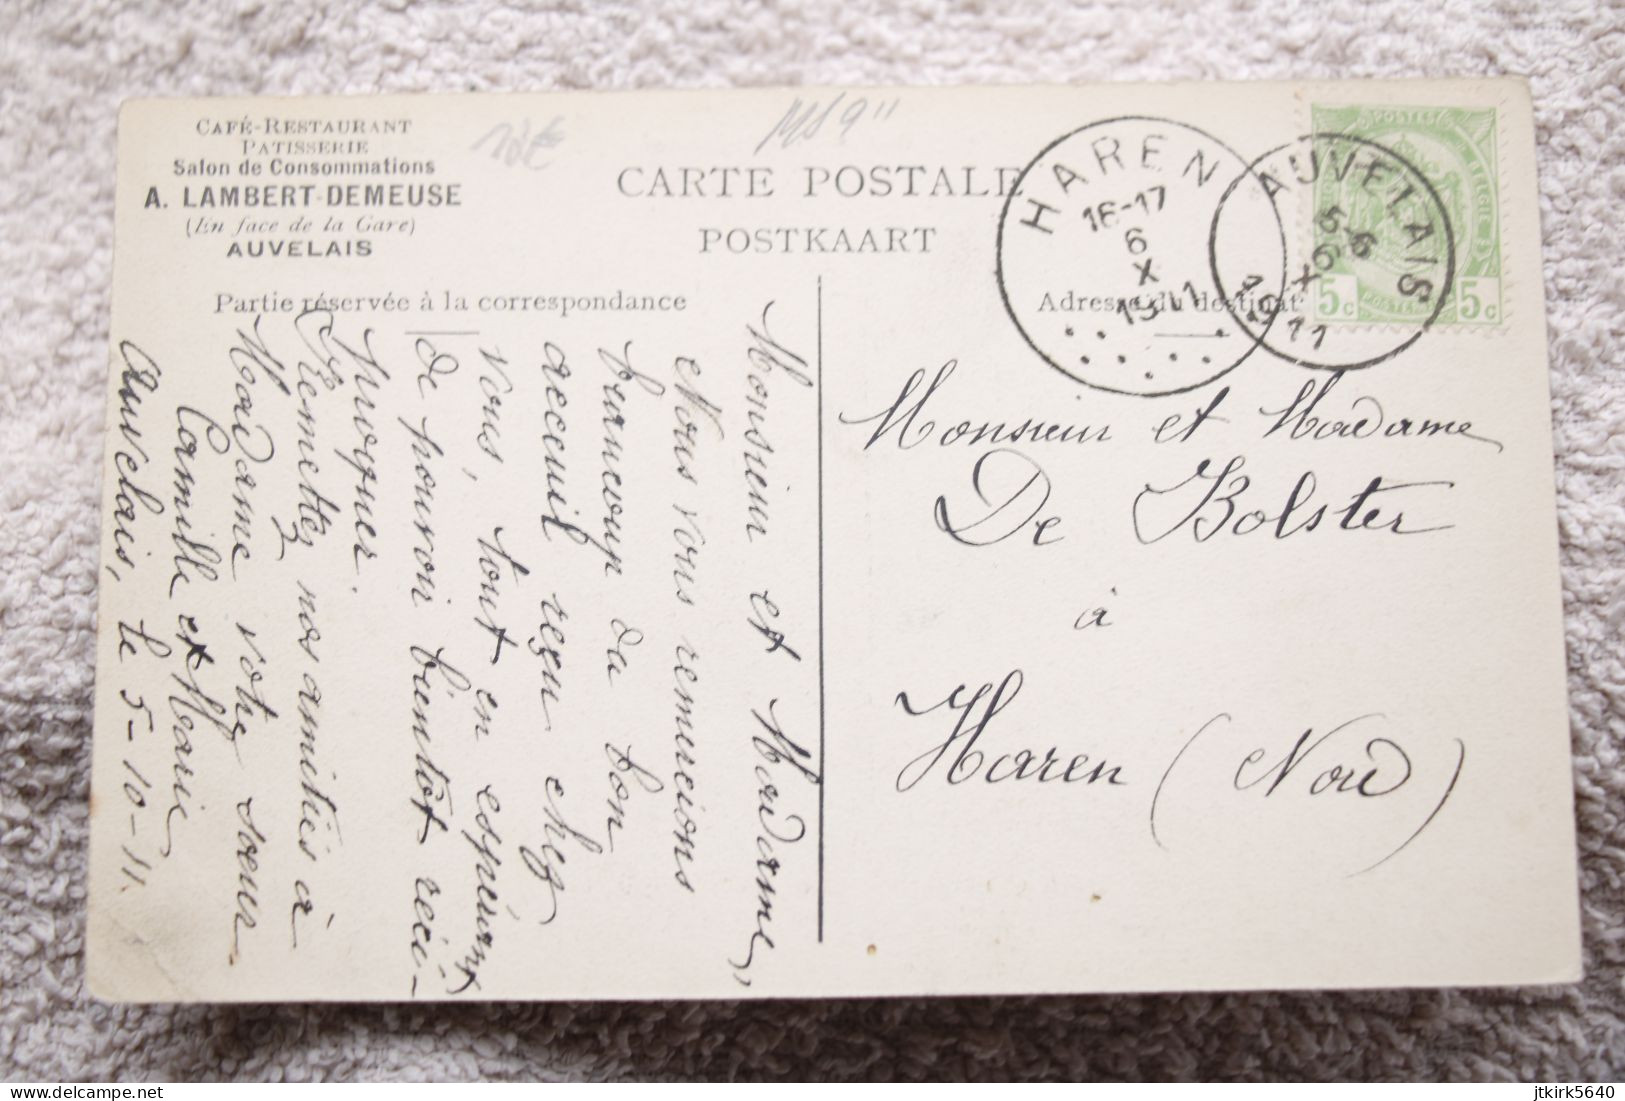 CAFÉ-RESTAURANT
PATISSERIE
Salon de Consommations
A. LAMBERT-DEMEUSE
(En face de la Gare)
AUVELAIS
CARTE POSTALE
POSTKAART
Partie réservée à la correspondance
Adresse du destinat
HAREN
16-17
6
X
1911
AUVELAIS
5
X
1911
POSTES
5c
5c
Monsieur et Madame,
Nous vous remercions
beaucoup du bon
acceuil reçu chez
vous, tout en espérant
de pouvoir bientôt réci-
proquer.
Remettez nos amitiés à
Madame votre soeur
Camille et Marie
Auvelais, le 5-10-11.
Monsieur et Madame
De Bolster
à
Haren (Nord)
delcampe.net
jtkirk5640